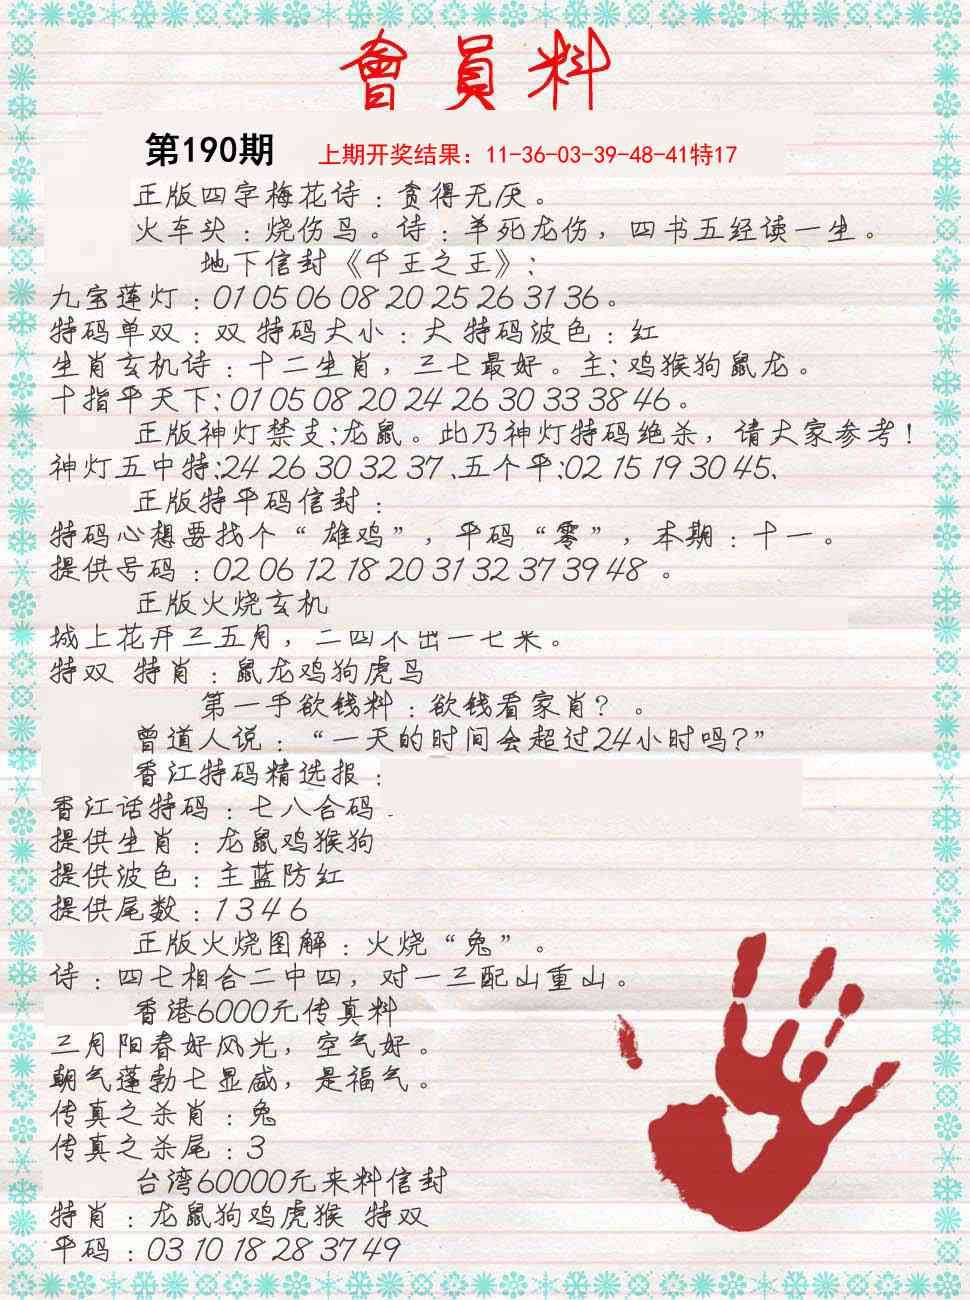 會員料
第190期 上期开奖结果：11-36-03-39-48-41特17
正版四字梅花诗：贪得无厌。
火车头：烧伤鸟。诗：羊死龙伤，四书五经读一生。
地下信封《千王之王》：
九宝莲灯：01 05 06 08 20 25 26 31 36。
特码单双：双 特码大小：大 特码波色：红
生肖玄机诗：十二生肖，三七最好。主：鸡猴狗鼠龙。
十指平天下：01 05 08 20 24 26 30 33 38 46。
正版神灯禁支：龙鼠。此乃神灯特码绝杀，请大家参考！
神灯五中特：24 26 30 32 37、五个平：02 15 19 30 45、
正版特平码信封：
特码心想要找个“雄鸡”，平码“零”，本期：十一。
提供号码：02 06 12 18 20 31 32 37 39 48 。
正版火烧玄机
城上花开三五月，二四不出一七来。
特双 特肖：鼠龙鸡狗虎马
第一手欲钱料：欲钱看家肖？。
曾道人说：“一天的时间会超过24小时吗？”
香江特码精选报：
香江话特码：七八合码.
提供生肖：龙鼠鸡猴狗
提供波色：主蓝防红
提供尾数：1 3 4 6
正版火烧图解：火烧“兔”。
诗：四七相合二中四，对一三配山重山。
香港6000元传真料
三月阳春好风光，空气好。
朝气蓬勃七显威，是福气。
传真之杀肖：兔
传真之杀尾：3
台湾60000元来料信封
特肖：龙鼠狗鸡虎猴 特双
平码：03 10 18 28 37 49